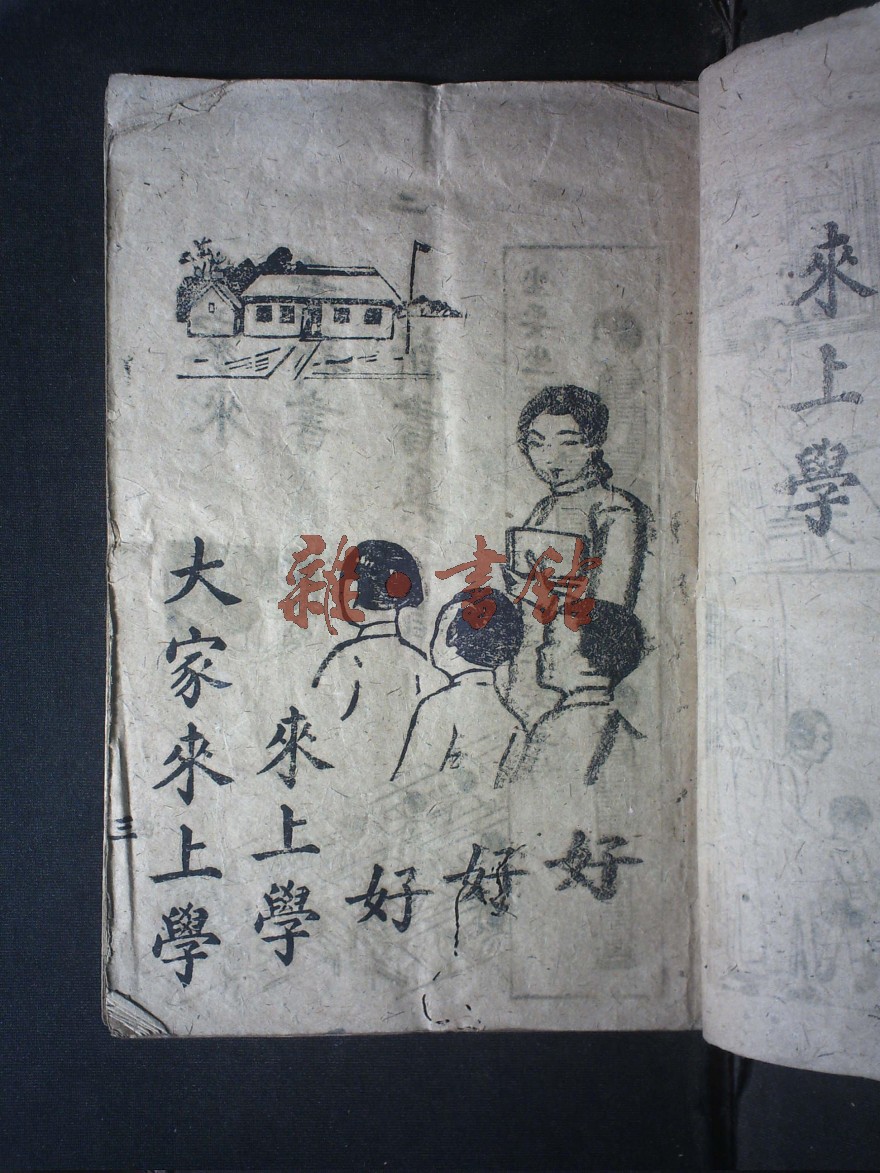 來上學
好
好
好
來上學
大家來上學
三
雜·書館